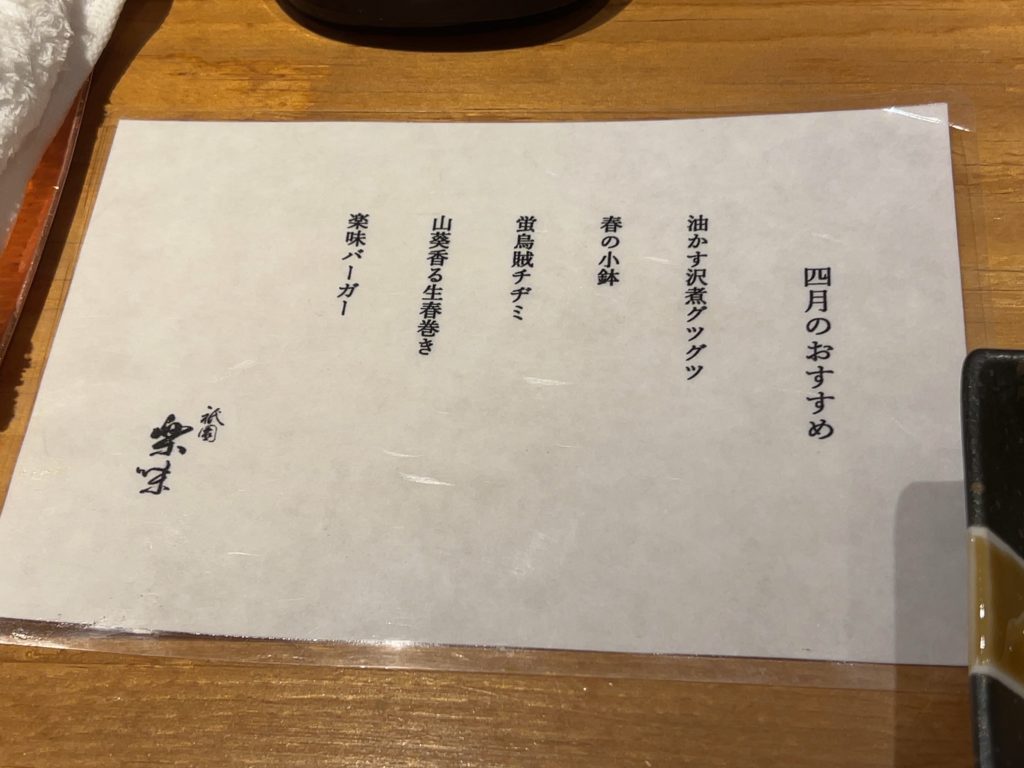 四月のおすすめ
油かす沢煮グツグツ
春の小鉢
蛍烏賊チヂミ
山葵香る生春巻き
楽味バーガー
祇園
楽味